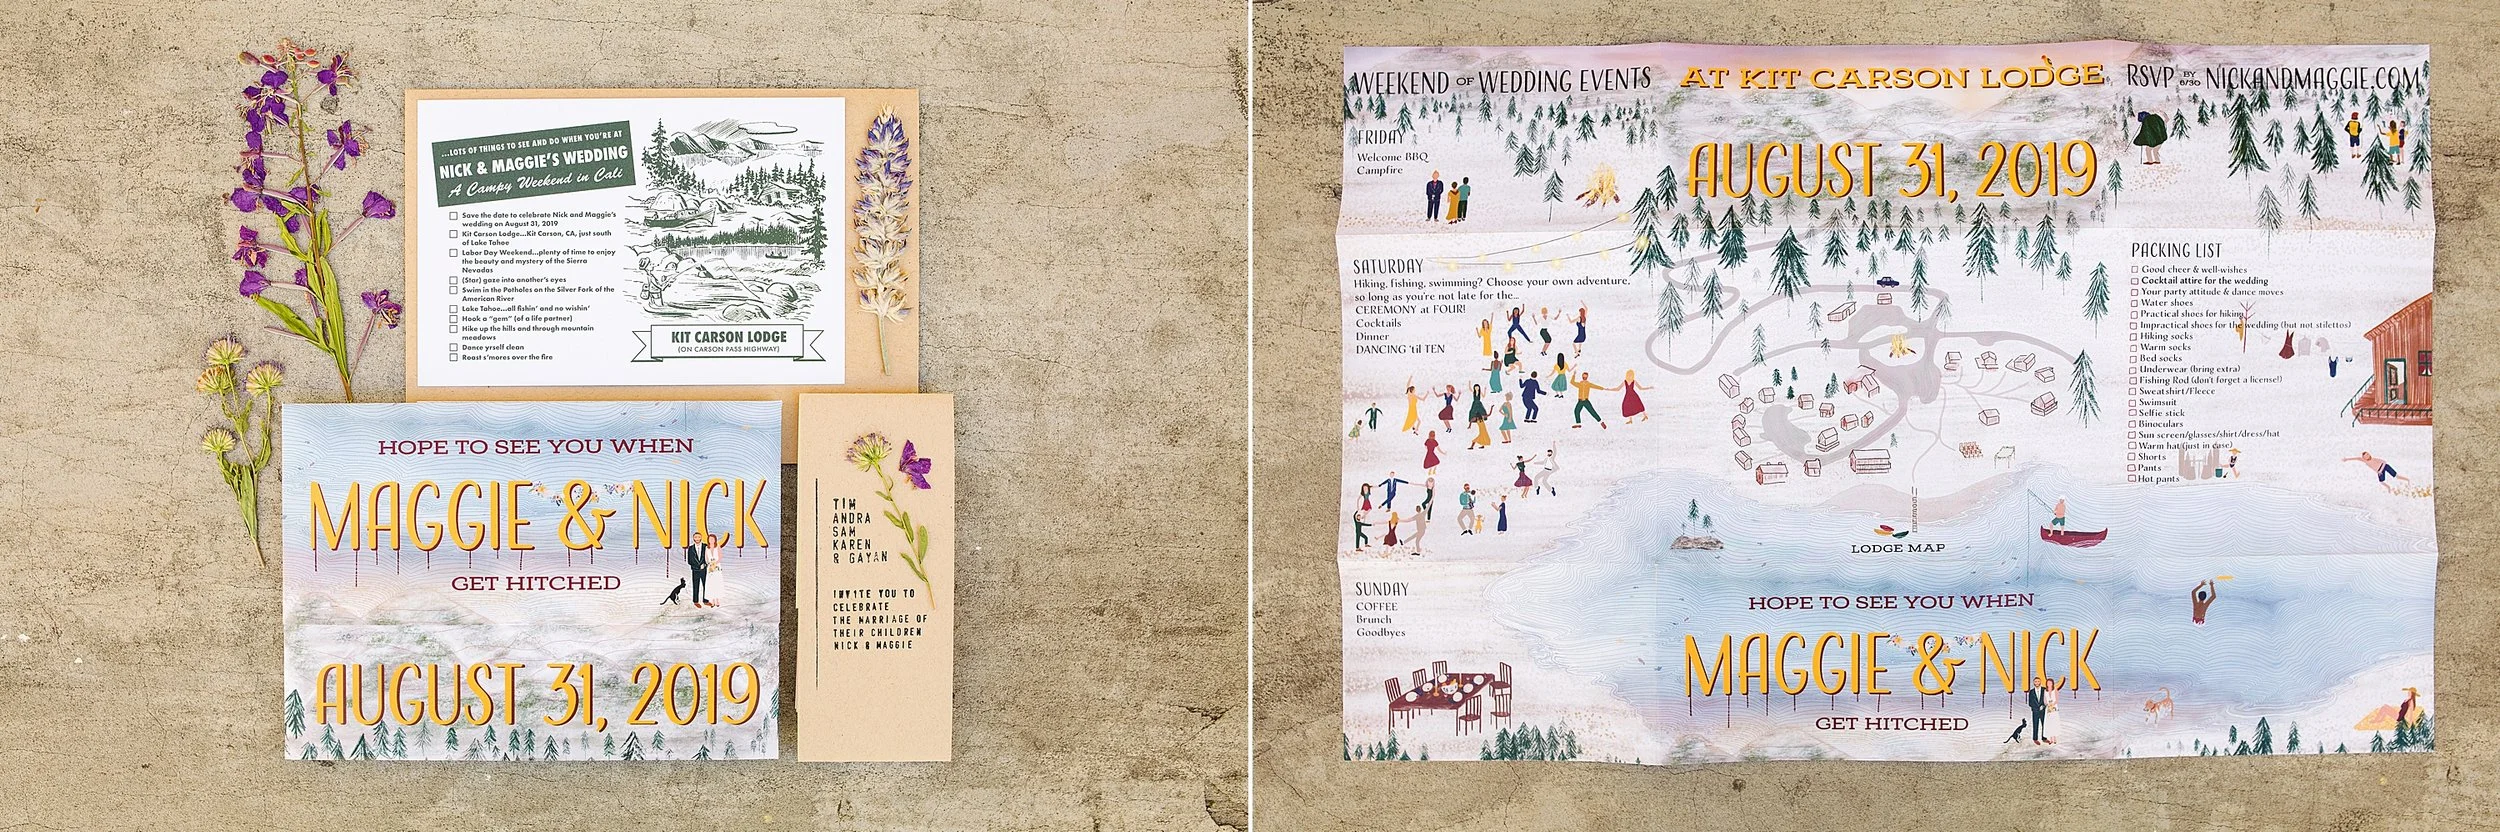 ...LOTS OF THINGS TO SEE AND DO WHEN YOU'RE AT
NICK & MAGGIE'S WEDDING
A Campy Weekend in Cali
Save the date to celebrate Nick and Maggie's
wedding on August 31, 2019
Kit Carson Lodge...Kit Carson, CA, just south
of Lake Tahoe
Labor Day Weekend...plenty of time to enjoy
the beauty and mystery of the Sierra
Nevadas
(Star) gaze into another's eyes
Swim in the Potholes on the Silver Fork of the
American River
Lake Tahoe...all fishin' and no wishin'
Hook a "gem" (of a life partner)
Hike up the hills and through mountain
meadows
Dance yrself clean
Roast s'mores over the fire
KIT CARSON LODGE
(ON CARSON PASS HIGHWAY)
HOPE TO SEE YOU WHEN
MAGGIE & NICK
GET HITCHED
AUGUST 31, 2019
TIM
ANDRA
SAM
KAREN
& GAYAN
INVITE YOU TO
CELEBRATE
THE MARRIAGE OF
THEIR CHILDREN
NICK & MAGGIE
WEEKEND OF WEDDING EVENTS
FRIDAY
Welcome BBQ
Campfire
SATURDAY
Hiking, fishing, swimming? Choose your own adventure,
so long as you're not late for the...
CEREMONY at FOUR!
Cocktails
Dinner
DANCING 'til TEN
SUNDAY
COFFEE
Brunch
Goodbyes
AT KIT CARSON LODGE
AUGUST 31, 2019
LODGE MAP
HOPE TO SEE YOU WHEN
MAGGIE & NICK
GET HITCHED
RSVP BY 6/30 NICKANDMAGGIE.COM
PACKING LIST
Good cheer & well-wishes
Cocktail attire for the wedding
Your party attitude & dance moves
Water shoes
Practical shoes for hiking
Impractical shoes for the wedding (but not stilettos)
Hiking socks
Warm socks
Bed socks
Underwear (bring extra)
Fishing Rod (don't forget a license!)
Sweatshirt/Fleece
Swimsuit
Selfie stick
Binoculars
Sun screen/glasses/shirt/dress/hat
Warm hat (just in case)
Shorts
Pants
Hot pants